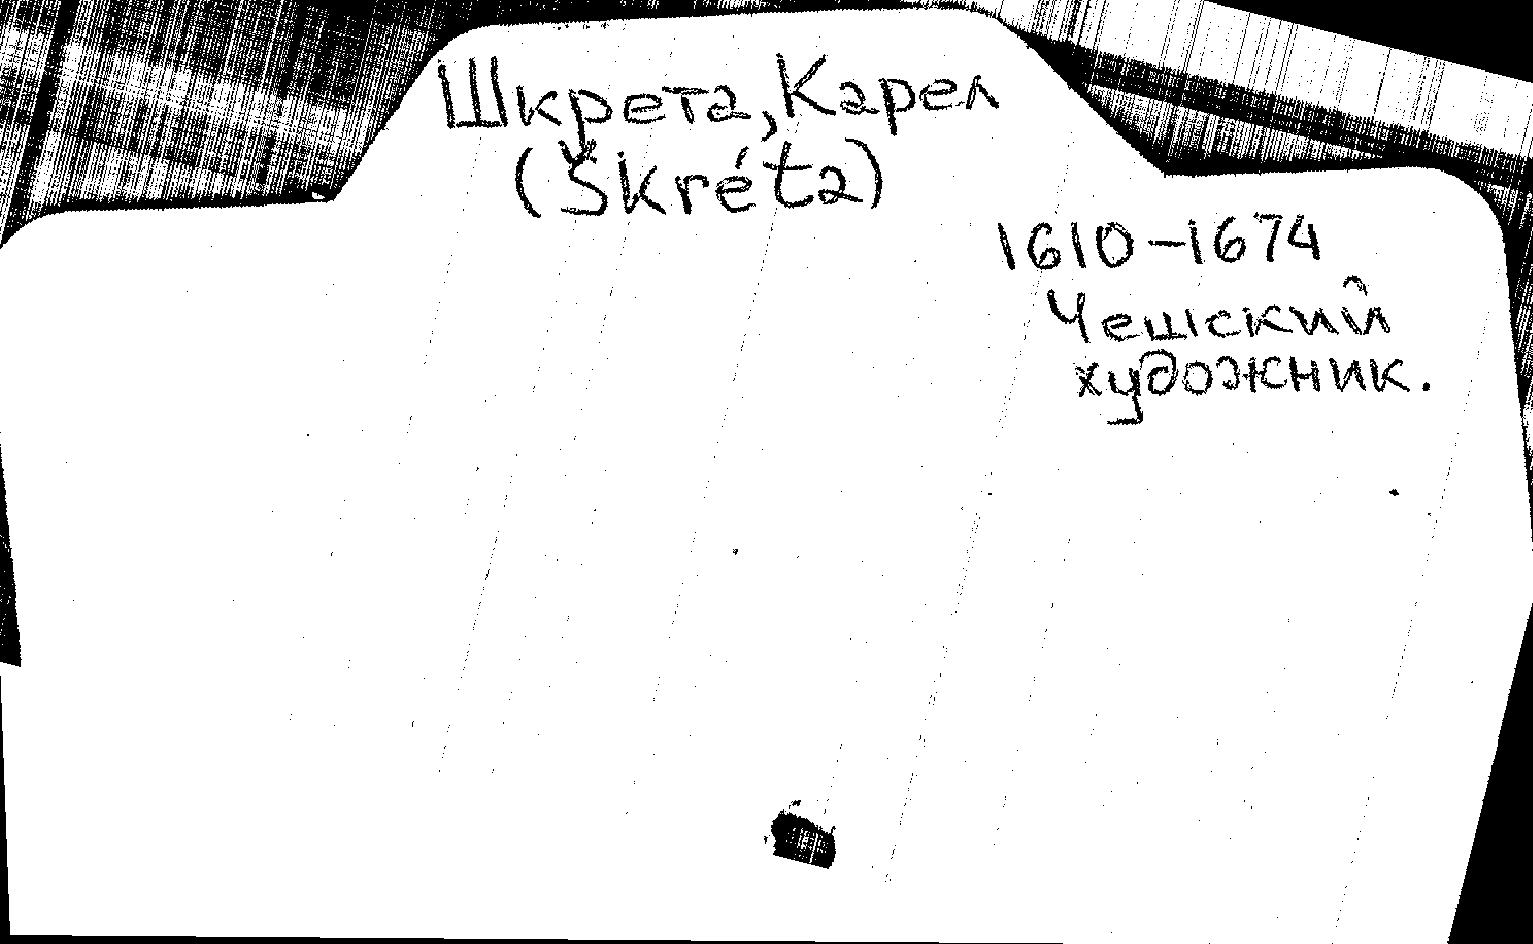 Шкрета, Карел
(Škréta)
1610-1674
Чешский
художник.